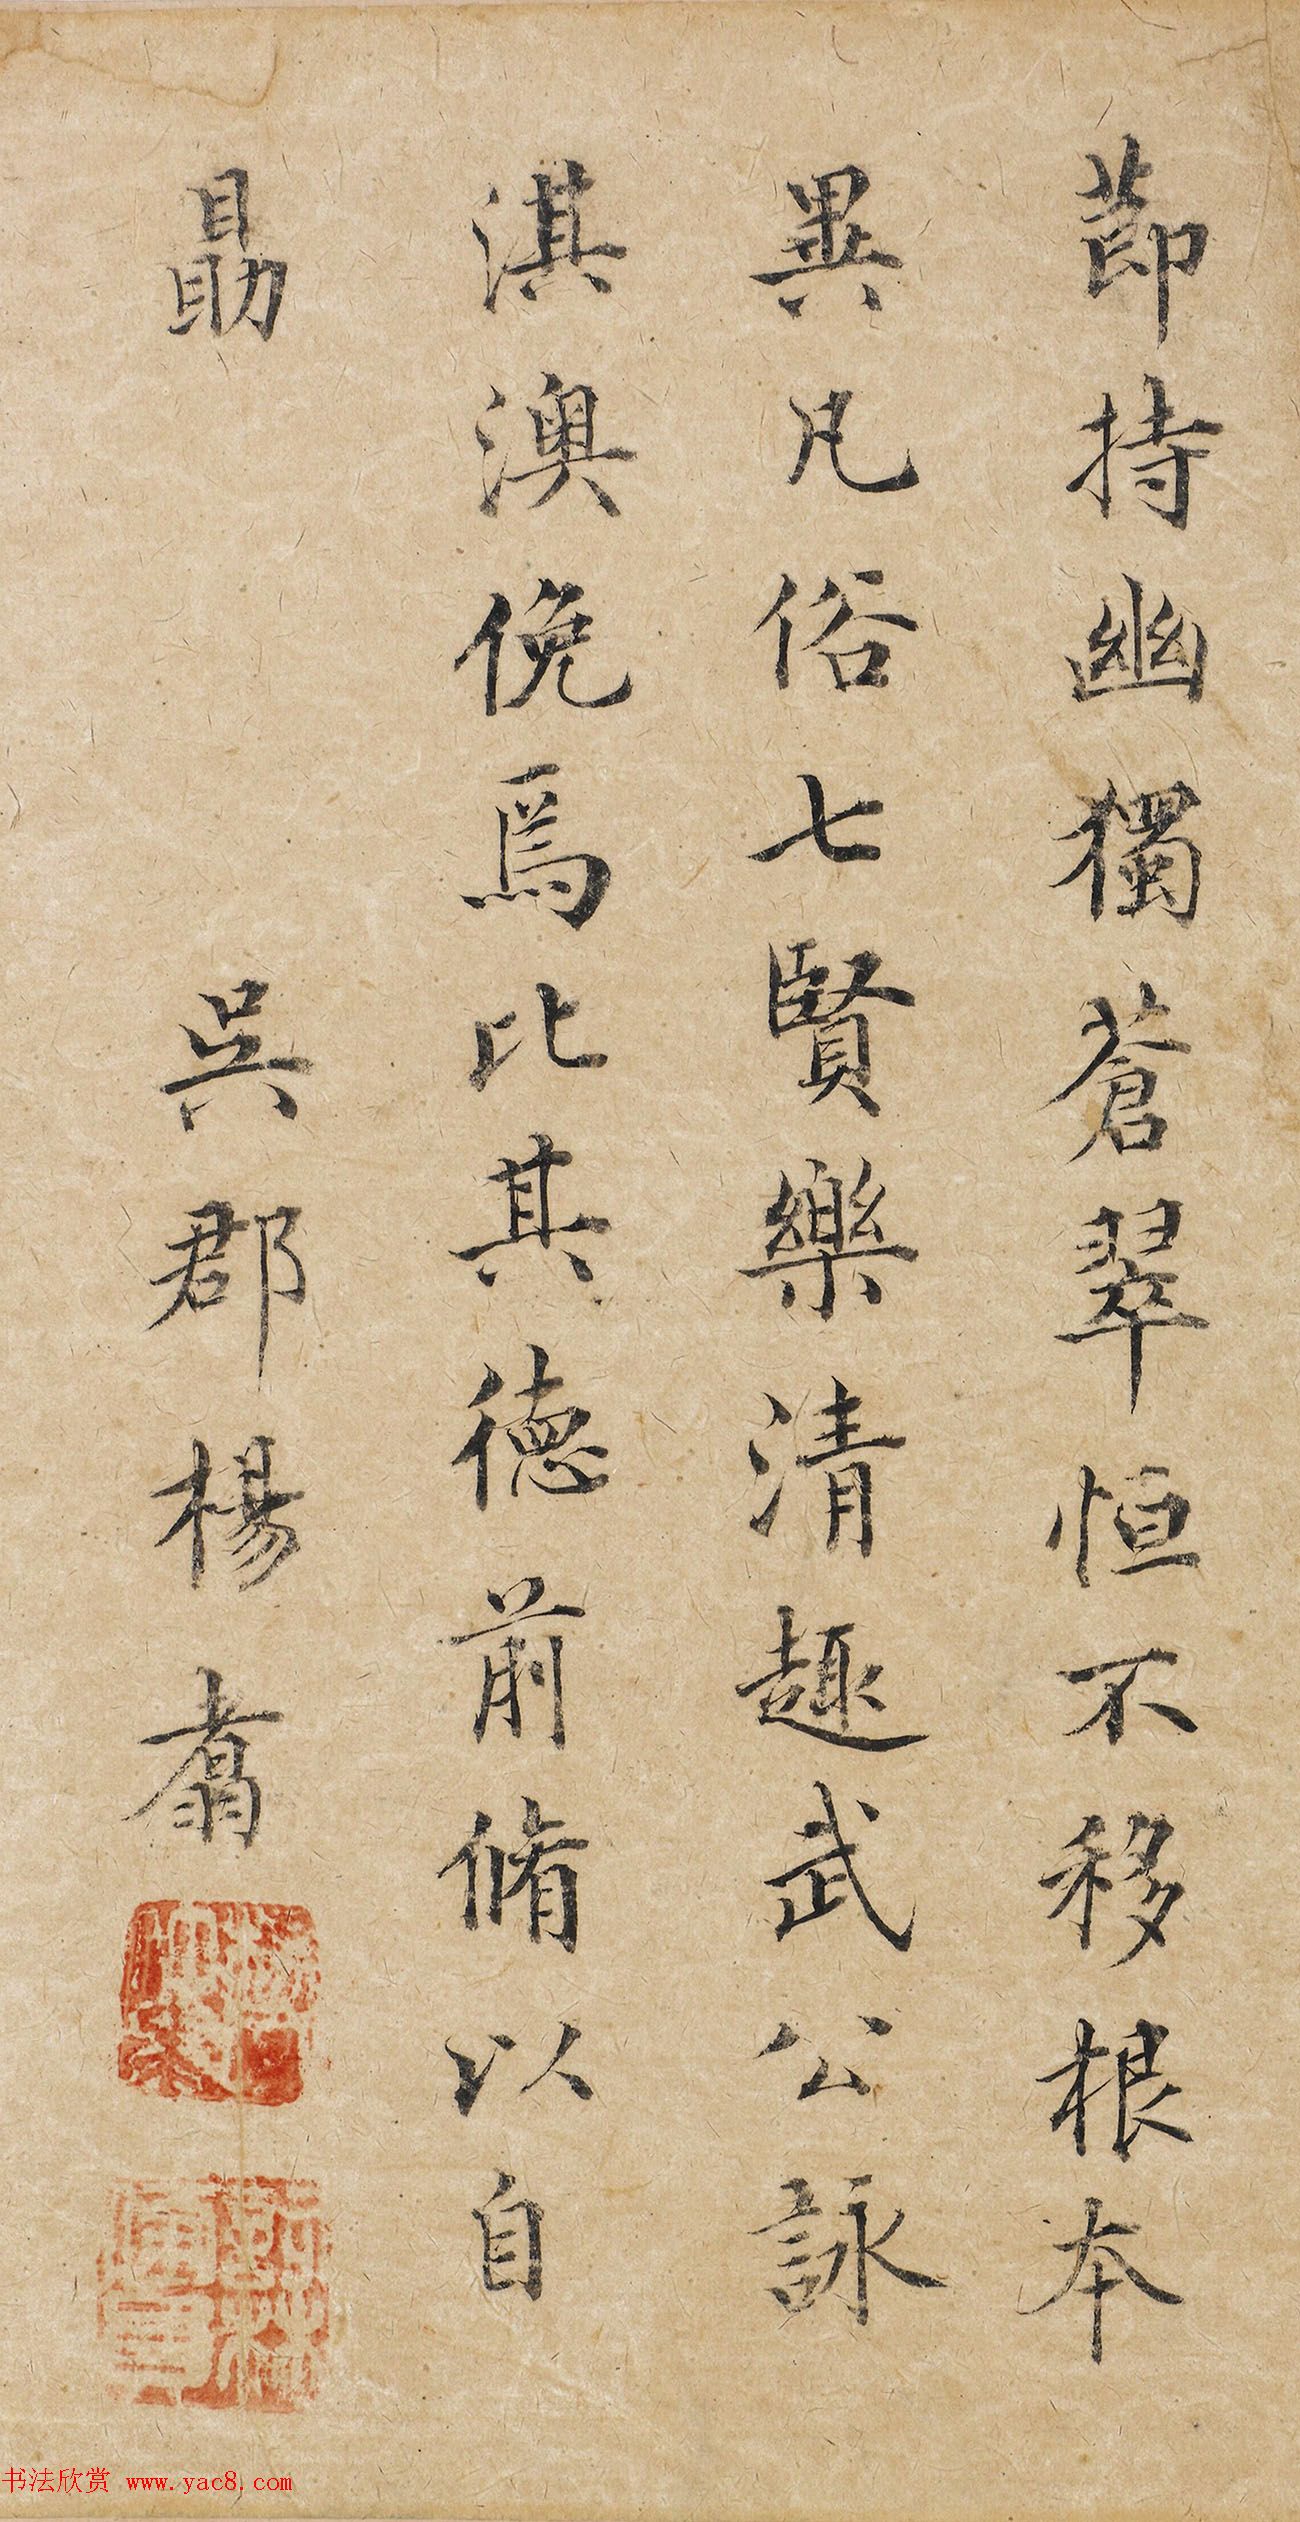 莭持幽獨蒼翠恒不移根本
異凡俗七賢樂清趣武公詠
淇澳俛焉比其德前脩以自
勗
吳郡楊翥
书法欣赏 www.yac8.com